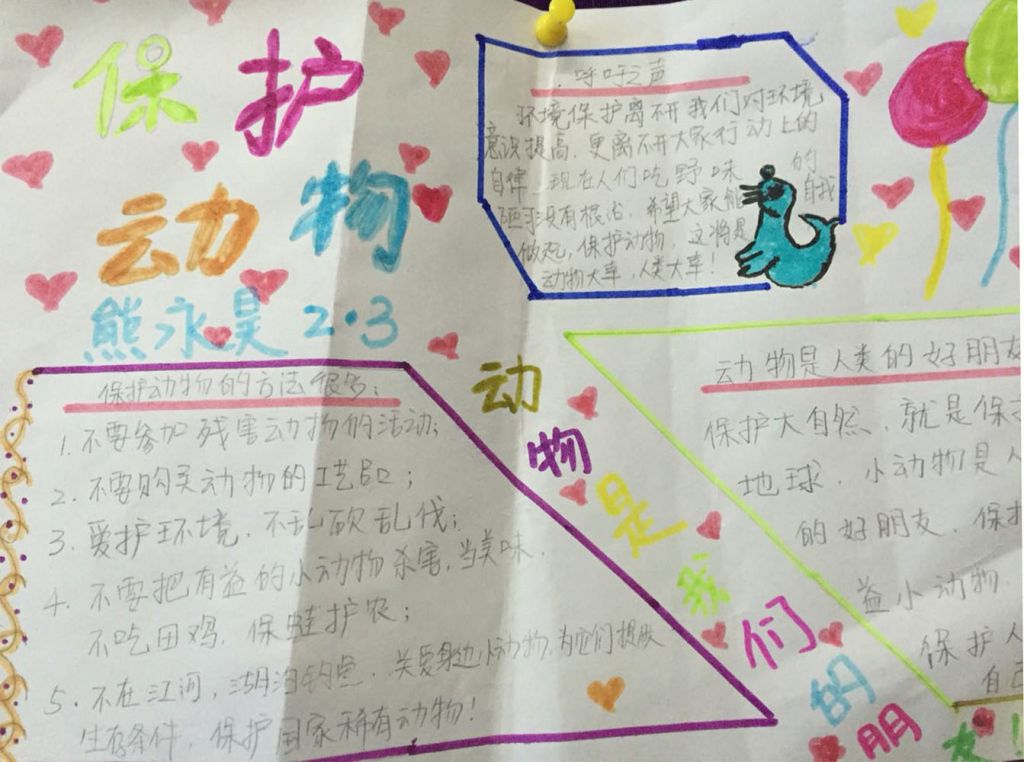 保护
动物
熊永昊 2·3
呼吁之声
环境保护离不开我们对环境
意识提高,更离不开大家行动上的
自律,现在人们吃野味的
陋习没有根治,希望大家能自我
做起,保护动物,这将是
动物大幸,人类大幸!
保护动物的方法很多:
1.不要参加残害动物的活动;
2.不要购买动物的工艺品;
3.爱护环境,不乱砍乱伐;
4.不要把有益的小动物杀害,当美味,
不吃田鸡,保蛙护农;
5.不在江河,湖泊钓鱼,关爱身边小动物,为它们提供
生存条件,保护国家稀有动物!
动物是我们的朋友!
动物是人类的好朋友
保护大自然,就是保护
地球,小动物是人
的好朋友,保护
益小动物,
保护人
自己